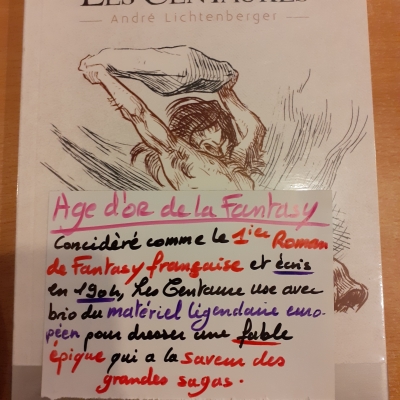 LES CENTAURES
André Lichtenberger
Age d'or de la Fantasy
Concidèré comme le 1ier Roman
de Fantasy française et écris
en 1904, Les Centaure use avec
brio du matériel légendaire euro-
péen pour dresser une fable
épique qui a la saveur des
grandes sagas.